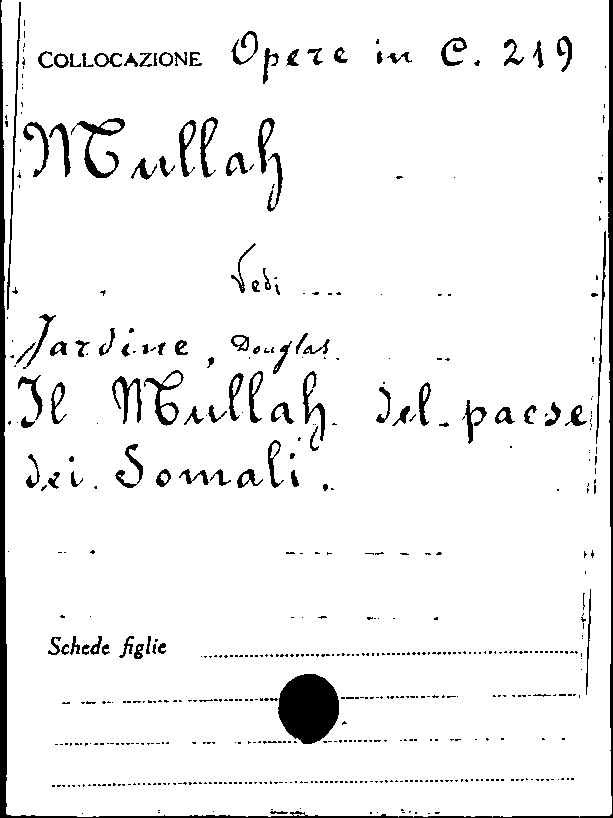 COLLOCAZIONE Opere in C. 219
Mullah
Vedi
Jardine, Douglas
Il Mullah del paese
dei Somali.
Schede figlie